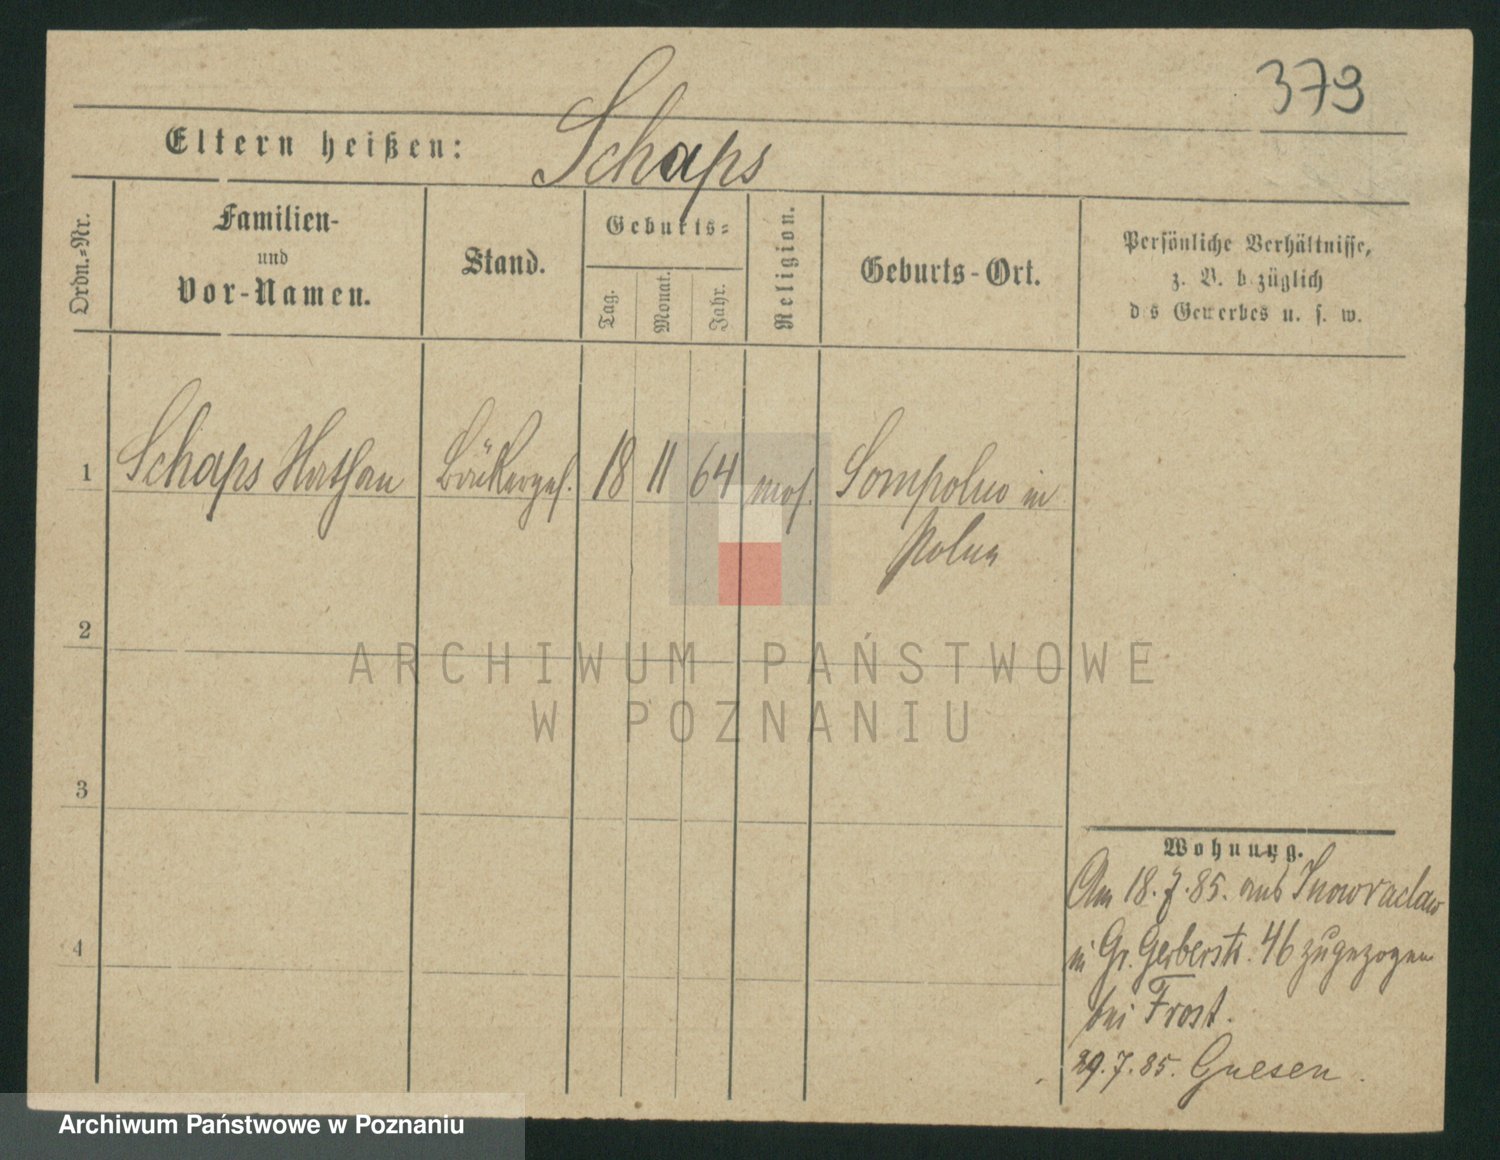 379
Eltern heißen: Schaps
Ordn.-Nr.
Familien-
und
Vor-Namen.
Stand.
Geburts-
Tag.
Monat.
Jahr.
Religion.
Geburts-Ort.
Persönliche Verhältnisse,
z. B. bezüglich
des Gewerbes u. s. w.
1 Schaps Nathan Bäckerges. 18 11 64 mos. Sompolno in
Polen
2
3
4
Wohnung.
Am 18.7.85. aus Inowraclaw
in Gr. Gerberstr. 46 zugezogen
bei Frost.
29.7.85. Gnesen.
ARCHIWUM PAŃSTWOWE
W POZNANIU
Archiwum Państwowe w Poznaniu